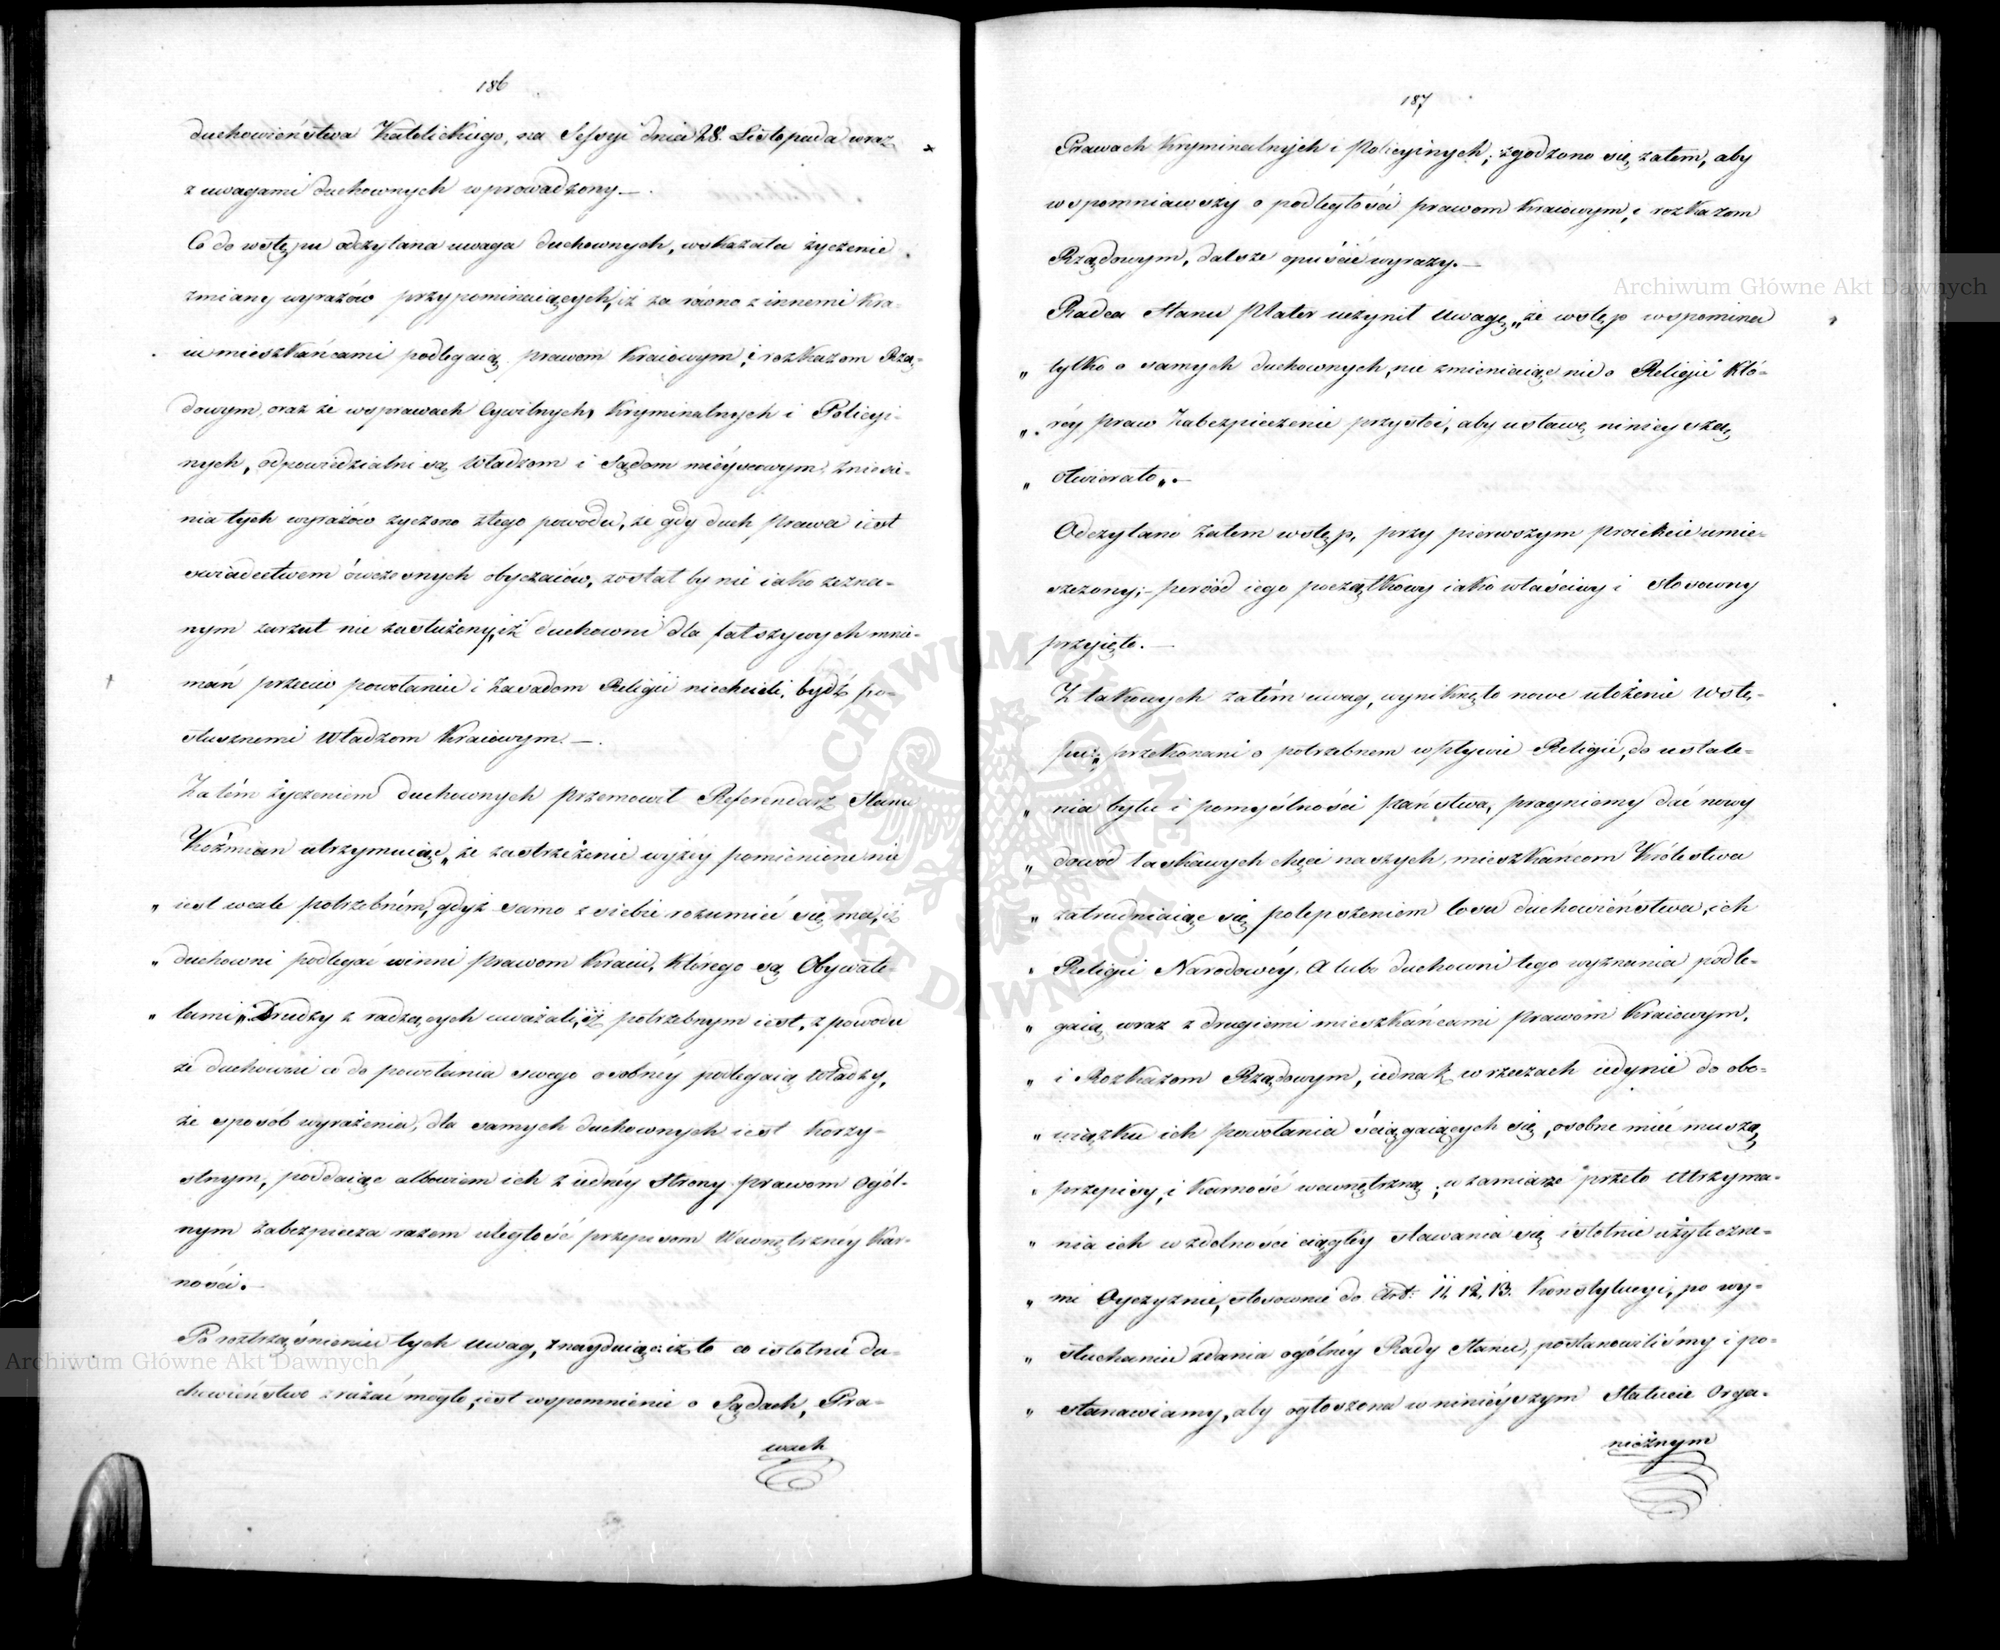 186
duchowieństwa Katolickiego, na Sessyi dnia 28. Listopada wraz
z uwagami duchownych wprowadzony. —
Co do wstępu odczytana uwaga duchownych, wskazała życzenie
zmiany wyrazów przypominaiących, iż za równo z innemi Kra-
iu mieszkańcami podlegaią prawom Kraiowym, i rozkazom Rzą-
dowym, oraz że w sprawach Cywilnych, Kryminalnych i Policyi-
nych, odpowiedzialni są Władzom i Sądom mieyscowym, zniesie-
nia tych wyrazów życzono z tego powodu, że gdy duch Prawa iest
swiadectwem ówczesnych obyczaiów, został by nie iako zezna-
nym zarzut nie zasłużony, iż duchowni dla fałszywych mnie-
mań przeciw powołaniu i zasadom Religii niechcieli, bydź po-
słusznemi Władzom Kraiowym. —
Za tém życzeniem duchownych przemówił Referendarz Stanu
Koźmian utrzymuiąc „że zastrzeżenie wyżey pomienione nie
„ iest wcale potrzebném, gdyż samo z siebie rozumieć się ma, iż
„ duchowni podlegać winni Prawom Kraiu, którego są Obywate-
„ lami„. Drudzy z radzących uważali, iż potrzebnym iest, z powodu
że duchowni co do powołania swego osobnéy podlegaią Władzy,
że sposób wyrażenia, dla samych duchownych iest korzy-
stnym, poddaiąc albowiem ich z iednéy Strony prawom Ogól-
nym zabezpiecza razem uległość przepisom Wewnętrznéy Kar-
ności. —
Po roztrząśnieniu tych uwag, znayduiąc iż to co istotnie du-
chowieństwo zrażać mogło, iest wspomnienie o Sądach, Pra-
wach
187
Prawach Kryminalnych i Policyinych; zgodzono się zatem, aby
wspomniawszy o podległości prawom Kraiowym, i rozkazom
Rządowym, dalsze opuścić wyrazy. —
Radca Stanu Plater uczynił uwagę „że wstęp wspomina
„ tylko o samych duchownych, nie zmieniaiąc nic o Religii któ-
„ réy praw zabezpieczenie przystoi, aby ustawę ninieyszą
„ otwierało„. —
Odczytano zatem wstęp, przy pierwszym proiekcie umie-
szczony; peryód iego początkowy iako właściwy i stosowny
przyięto. —
Z takowych zatém uwag, wyniknęło nowe ułożenie Wstę-
pu: „przekonani o potrzebnem wpływie Religii, do ustale-
„ nia bytu i pomyślności Państwa, pragniemy dać nowy
„ dowód łaskawych chęci naszych, mieszkańcom Królestwa
„ zatrudniaiąc się polepszeniem losu duchowieństwa, ich
„ Religii Narodowéy. A lubo duchowni tego wyznania podle-
„ gaią wraz z drugiemi mieszkańcami Prawom Kraiowym,
„ i Rozkazom Rządowym, iednak w rzeczach iedynie do obo-
„ wiązku ich powołania ściągaiących się, osobne mieć muszą
„ przepisy, i karność wewnętrzną; w zamiarze przeto utrzyma-
„ nia ich w zdolności ciągłéy stawania się istotnie użyteczne-
„ mi Oyczyznie, stosownie do Art: 11, 12, 13. Konstytucyi, po wy-
„ słuchaniu zdania ogólnéy Rady Stanu, postanowiliśmy i po-
„ stanawiamy, aby ogłoszona w ninieyszym Statucie Orga-
nicznym
Archiwum Główne Akt Dawnych
Archiwum Główne Akt Dawnych
ARCHIWUM GŁÓWNE AKT DAWNYCH